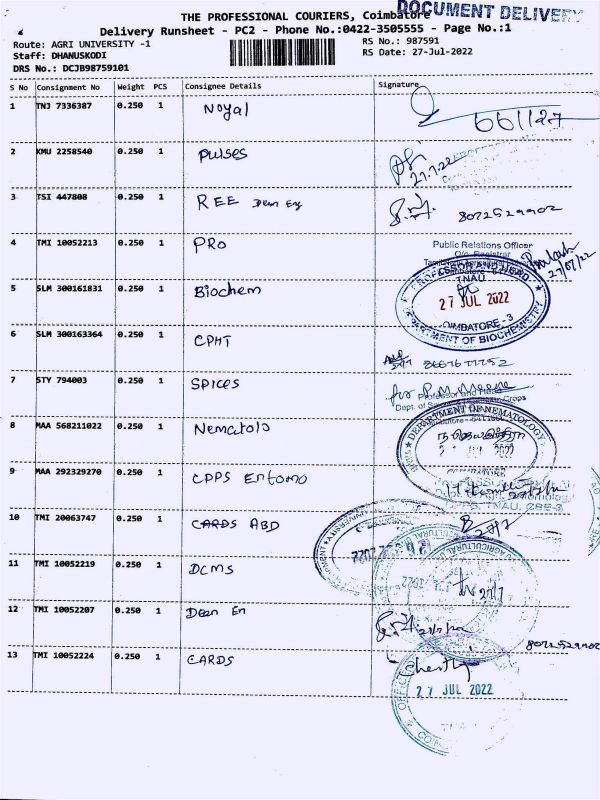 DOCUMENT DELIVERY
THE PROFESSIONAL COURIERS, Coimbatore
Delivery Runsheet - PC2 - Phone No.:0422-3505555 - Page No.:1
Route: AGRI UNIVERSITY -1
RS No.: 987591
Staff: DHANUSKODI
RS Date: 27-Jul-2022
DRS No.: DCJB98759101
S No Consignment No Weight PCS Consignee Details Signature
1 TNJ 7336387 0.250 1 Noyal 661127
2 KMU 2258540 0.250 1 Pulses 27.7.22
3 TSI 447808 0.250 1 REE Dean Eng 8072529902
4 TMI 10052213 0.250 1 PRO
Public Relations Officer
O/o. Registrar
27/07/22
5 SLM 300161831 0.250 1 Biochem
PROFESSOR AND HEAD
TNAU
27 JUL 2022
COIMBATORE - 3
DEPARTMENT OF BIOCHEMISTRY
6 SLM 300163364 0.250 1 CPHT
7 STY 794003 0.250 1 SPICES
for
Professor and Head
Dept. of Crops
8 MAA 568211022 0.250 1 Nematolo
DEPARTMENT OF NEMATOLOGY
JUL 2022
9 MAA 292329270 0.250 1 CPPS Entomo
TNAU, CBE-3
10 TMI 20063747 0.250 1 CARDS ABD
27/7
11 TMI 10052219 0.250 1 DCMS
27/7
12 TMI 10052207 0.250 1 Dean En
8072529902
13 TMI 10052224 0.250 1 CARDS
27 JUL 2022